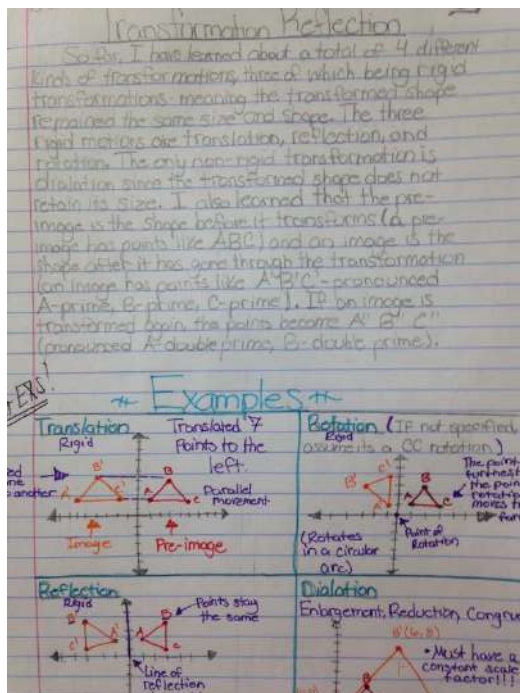 Transformation Reflection
So far, I have learned about a total of 4 different
kinds of transformations, three of which being rigid
transformations- meaning the transformed shape
remained the same size and shape. The three
rigid motions are translation, reflection, and
rotation. The only non-rigid transformation is
dialation since the transformed shape does not
retain its size. I also learned that the pre-
image is the shape before it transforms (a pre-
image has points like ABC) and an image is the
shape after it has gone through the transformation
(an image has points like A'B'C' - pronounced
A-prime, B-prime, C-prime). If an image is
transformed again, the points become A" B" C"
(pronounced A-double prime, B-double prime).
EXS!
Examples
Translation
Rigid
Translated 7
Points to the
left.
Parallel
movement
B'
A'
C'
B
A
C
Image
Pre-image
Rotation (IF not specified,
assume its a CC rotation)
Rigid
B'
C'
A'
B
A
C
The point
furthest
the point
rotation
moves t
Point of
Rotation
(Rotates
in a circular
arc)
Reflection
Rigid
Points stay
the same
B'
A'
C'
B
A
C
Line of
reflection
Dialation
Enlargement, Reduction, Congru
B'(6,8)
• Must have a
constant scale
factor!!!
B